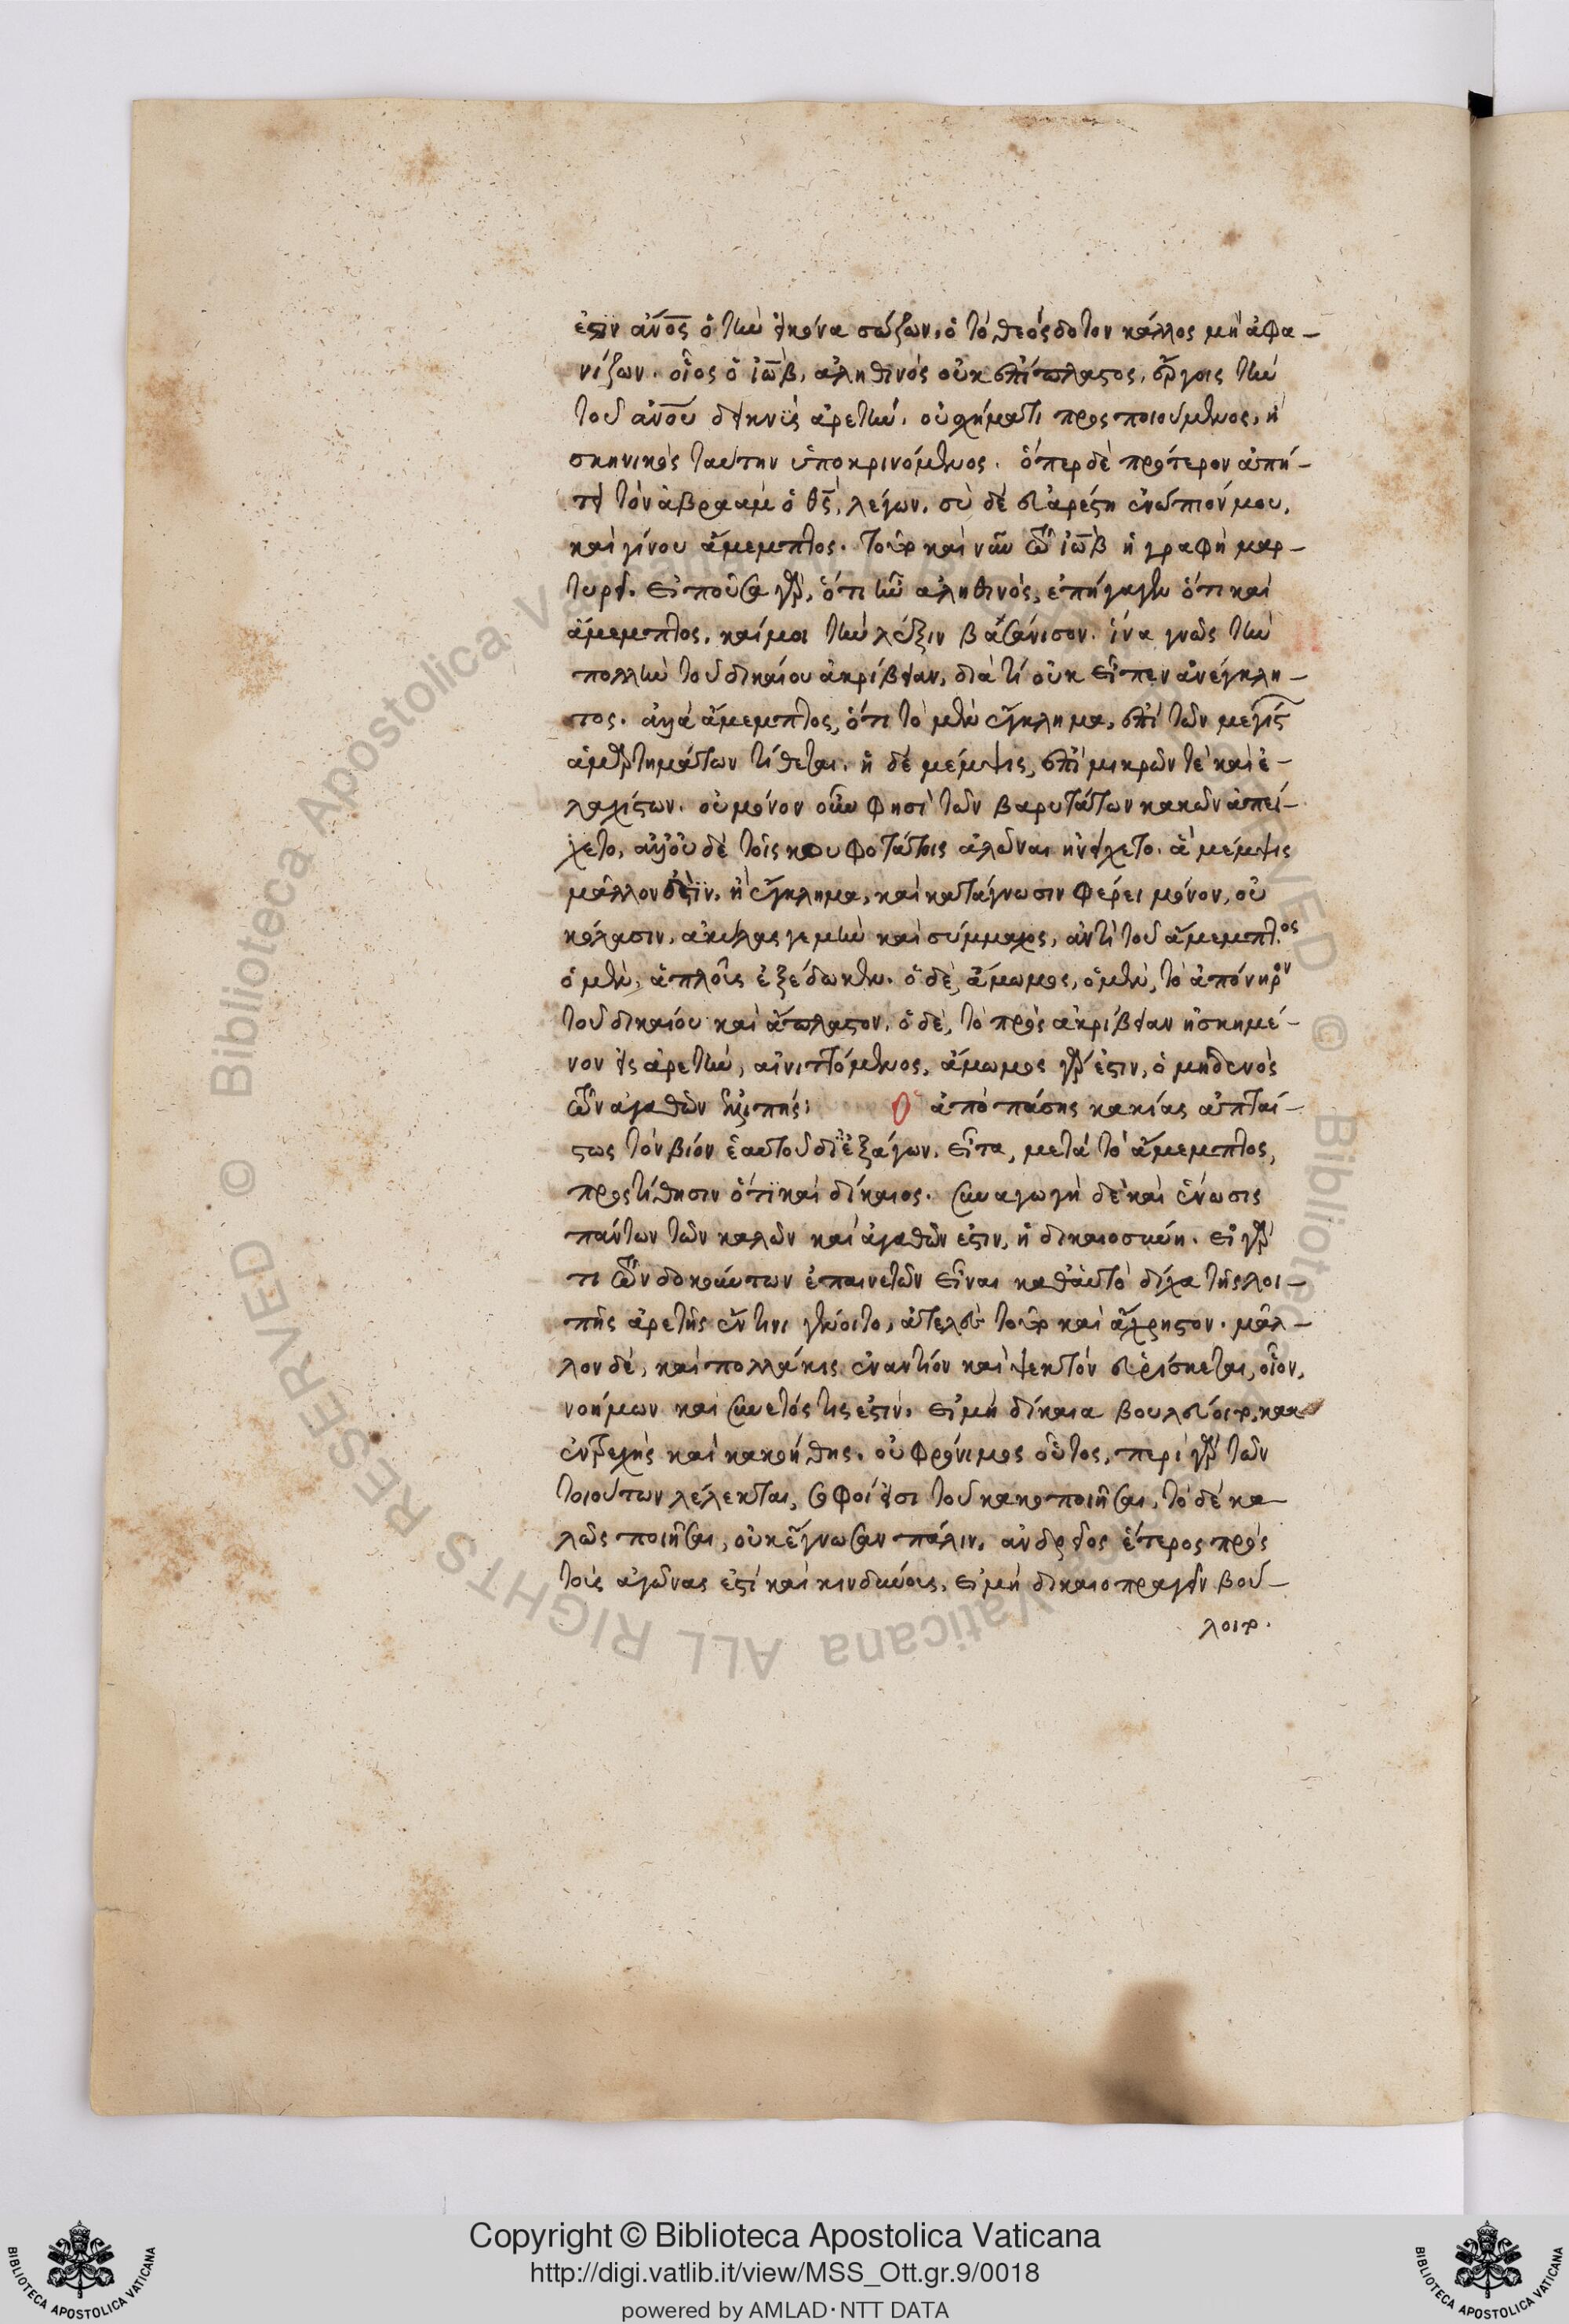 ἐστιν ἄν̅ο̅ς̅ ὁ τὴν εἰκόνα σώζων, ὁ τὸ θεόσδοτον κάλλος μὴ ἀφα-
νίζων. οἷος ὁ ἰὼβ, ἀληθινὸς οὐκ ἐπίπλαστος, ἔργοις τὴν
τοῦ ἀν̅ο̅υ̅ δεικνὺς ἀρετὴν. οὐ σχήματι προσποιούμενος, ἢ
σκηνικὸς ταύτην ὑποκρινόμενος. ὅπερ δὲ πρότερον ἀπή-
τει τὸν ἀβραὰμ ὁ θ̅ς̅, λέγων. σὺ δὲ εὐαρέστη ἐνώπιόν μου,
καὶ γίνου ἄμεμπτος. τοῦτο καὶ νῦν τῷ ἰὼβ ἡ γραφὴ μαρ-
τυρεῖ. εἰποῦσα γὰρ, ὅτι ἦν ἀληθινὸς, ἐπήγαγεν ὅτι καὶ
ἄμεμπτος. καί μοι τὴν λέξιν βασάνισον. ἵνα γνῷς τὴν
πολλὴν τοῦ δικαίου ἀκρίβειαν, διὰ τί οὐκ εἶπεν ἀνέγκλη-
τος. ἀλλὰ ἄμεμπτος, ὅτι τὸ μὲν ἔγκλημα, ἐπὶ τῶν μεγίστ
ἁμαρτημάτων τίθεται. ἡ δὲ μέμψις, ἐπὶ μικρῶν τὲ καὶ ἐ-
λαχίστων. οὐ μόνον οὖν φησὶ τῶν βαρυτάτων κακῶν ἀπεί-
χετο, ἀλλ' οὐδὲ τοῖς κουφοτάτοις ἁλῶναι ἠνείχετο. ἃ μέμψις
μᾶλλον ἐστὶν, ἢ ἔγκλημα, καὶ κατάγνωσιν φέρει μόνον, οὐ
κόλασιν, ἀκύλας γε μὴν καὶ σύμμαχος, ἀντὶ τοῦ ἄμεμπτος
ὁ μὲν, ἁπλοῦς ἐξέδωκεν. ὁ δὲ, ἄμωμος, ὁ μὲν, τὸ ἀπόνηρον
τοῦ δικαίου καὶ ἄπλαστον. ὁ δὲ, τὸ πρὸς ἀκρίβειαν ἠσκημέ-
νον εἰς ἀρετὴν, αἰνιττόμενος, ἄμωμος γὰρ ἐστιν, ὁ μηδενὸς
τῶν ἀγαθῶν ἐλλιπής: ὁ ἀπὸ πάσης κακίας ἀπταί-
στως τὸν βίον ἑαυτοῦ διεξάγων. εἶτα, μετὰ τὸ ἄμεμπτος,
προστίθησιν ὅτι καὶ δίκαιος. συναγωγὴ δὲ καὶ ἕνωσις
πάντων τῶν καλῶν καὶ ἀγαθῶν ἐστιν, ἡ δικαιοσύνη. εἰ γὰρ
τι τῶν δοκούντων ἐπαινετῶν εἶναι καθ' αὑτὸ δίχα τῆς λοι-
πῆς ἀρετῆς ἔν τινι γένοιτο, ἀτελὲς τοῦτο καὶ ἄχρηστον. μᾶλ-
λον δὲ, καὶ πολλάκις ἐναντίον καὶ ψεκτὸν εὑρίσκεται, οἷον,
νοήμων καὶ συνετός τις ἐστιν. εἰ μὴ δίκαια βουλεύοιτο, κακ
ἐντρεχὴς καὶ κακοήθης. οὐ φρόνιμος οὗτος, περὶ γὰρ τῶν
τοιούτων λέλεκται, σοφοί εἰσι τοῦ κακοποιῆσαι, τὸ δὲ κα-
λῶς ποιῆσαι, οὐκ ἔγνωσαν πάλιν, ἀνδρεῖος ἕτερος πρὸς
τοὺς ἀγῶνας ἐστὶ καὶ κινδύνους, εἰ μὴ δικαιοπραγεῖν βού-
λοιτο.
Copyright © Biblioteca Apostolica Vaticana
http://digi.vatlib.it/view/MSS_Ott.gr.9/0018
powered by AMLAD·NTT DATA